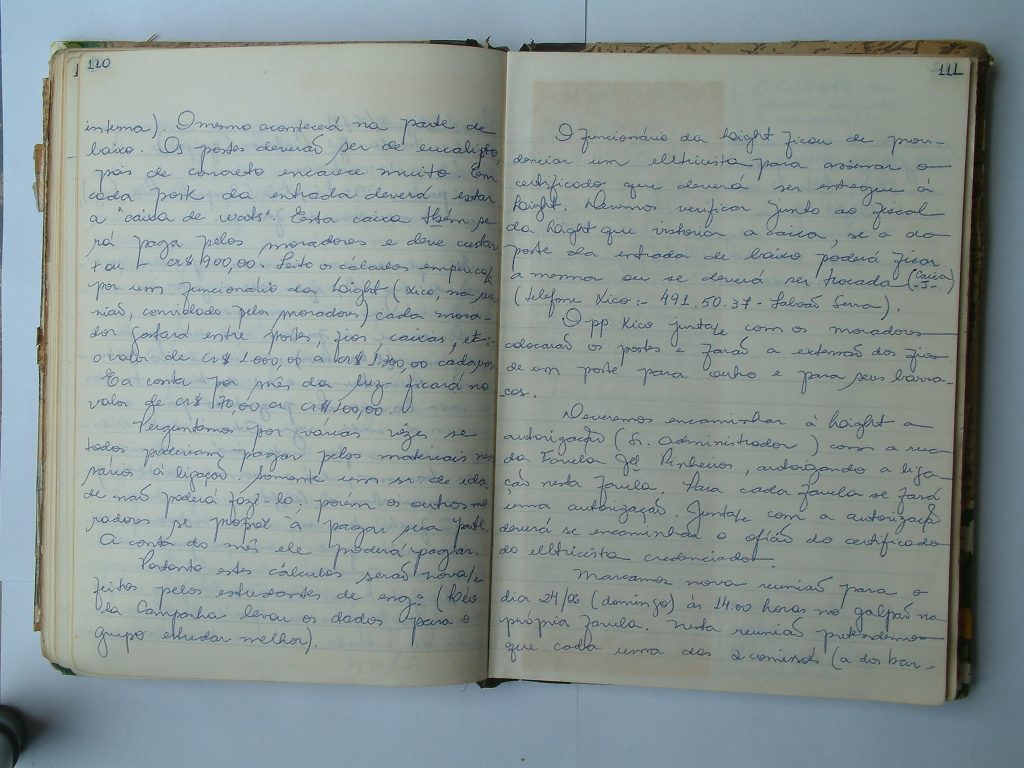 110
interna). O mesmo acontecerá na parte de
baixo. Os postes deverão ser de eucalipto,
pois de concreto encarece muito. Em
cada poste da entrada deverá estar
a "caixa de wats". Esta caixa tbém se
rá paga pelos moradores e deve custar
+ ou - CR$ 900,00. Feito os cálculos empirica/e
por um funcionário da Light (Xico, na reu
nião, convidado pelos moradores) cada mora-
dor gastará entre postes, fios, caixas, etc:-
o valor de CR$ 1.000,00 a CR$ 1.300,00 cada
E a conta por mês da luz ficará no
valor de CR$ 70,00 ou CR$ 100,00.
Perguntamos por várias vêzes se
todos poderiam pagar pelos materiais neces
sários à ligação. Somente um sr. de ida-
de não poderá fazê-lo; porém os outros mo
radores se propoe a pagar sua parte.
A conta do mês ele poderá pagar.
Portanto estes cálculos serão nova/e
feitos pelos estudantes de engª (Décio
da Campanha levar os dados para o
grupo estudar melhor).
111
O funcionário da Light ficou de provi-
denciar um eletricista para assinar o
certificado que deverá ser entregue à
Light. Devemos verificar junto ao fiscal
da Light que vistoriar a caixa, se a do
poste da entrada de baixo poderá ficar
a mesma ou se deverá ser trocada (Caixa)
(telefone Xico:- 491.50.37 - Serra).
O pp. Xico junta/e com os moradores
colocarão os postes e farão a extensão dos fios
de um poste para outro e para seus barra-
cos.
Deveremos encaminhar à Light a
autorização (Sr. Administrador) com a rua
da Favela Jd Pinheiros, autorizando a liga
ção nesta favela. Para cada favela se fará
uma autorização. Junta/e com a autorização
deverá se encaminhar o ofício do certificado
do eletricista credenciado.
Marcamos nova reunião para o
dia 24/06 (domingo) às 14:00 horas no galpão na
própria favela. Nesta reunião pretendemos
que cada uma das 2 comissões (a dos bar-